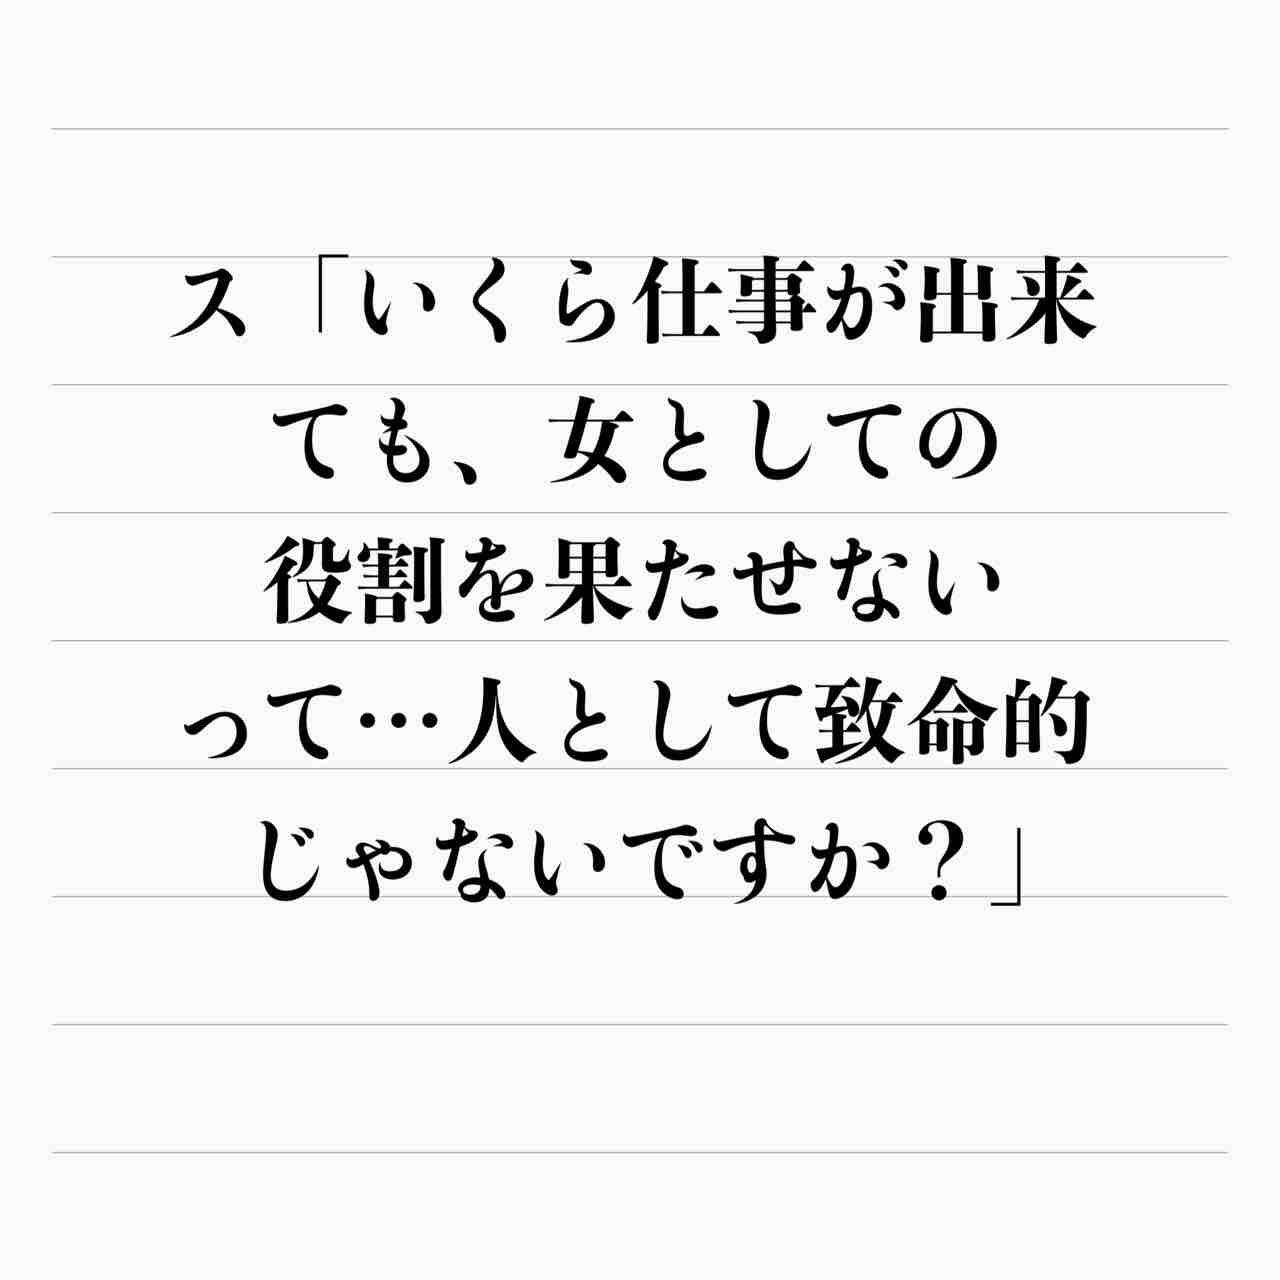 ス「いくら仕事が出来
ても、女としての
役割を果たせない
って…人として致命的
じゃないですか？」